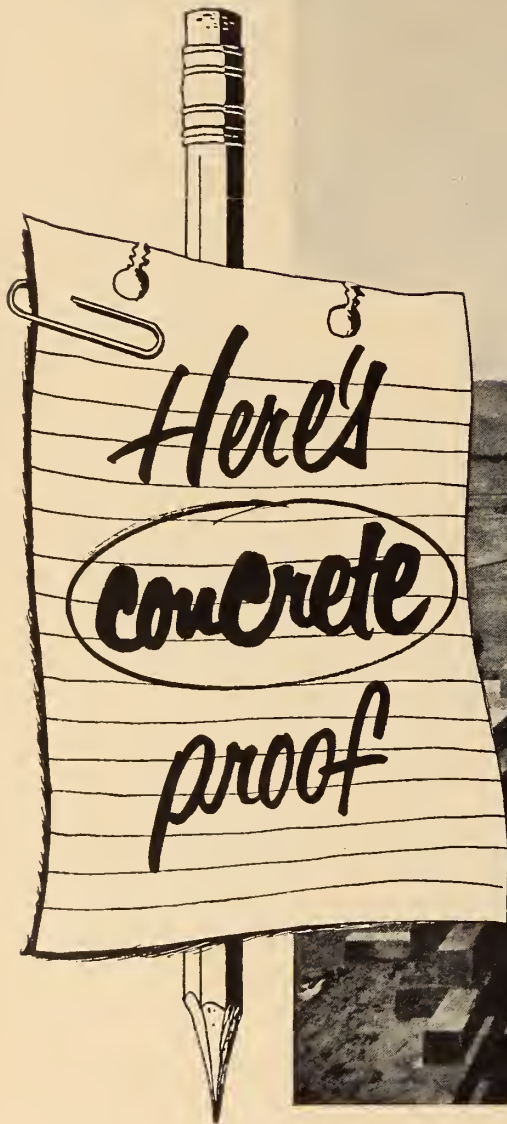 Here's
concrete
proof